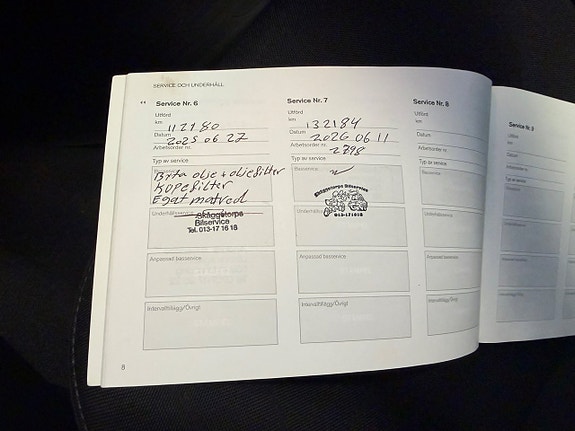 SERVICE OCH UNDERHÅLL
Service Nr. 6
Utförd
km
112180
Datum
2025 06 27
Arbetsorder nr.
Typ av service
Byta olje + oljefilter
KUPEfilter
Egat matred
Underhållsservice
Skäggetorps
Bilservice
Tel. 013-17 16 18
Anpassad basservice
Intervalltillägg/Övrigt
Service Nr. 7
Utförd
km
132184
Datum
2026 06 11
Arbetsorder nr.
2798
Typ av service
Basservice
Skäggetorps Bilservice
013-171618
Anpassad basservice
Intervalltillägg/Övrigt
Service Nr. 8
Utförd
km
Datum
Arbetsorder nr.
Typ av service
Basservice
Underhållsservice
Anpassad basservice
Intervalltillägg/Övrigt
Service Nr. 9
Utförd
km
Datum
Arbetsorder nr.
Typ av service
8